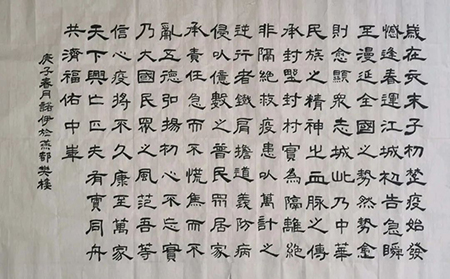 歲在亥末子初楚疫始發
憾逢春運江城初告急瞬
至漫延全國之勢然勢愈
愈顯眾志城此乃中華
民族之精神之血脉之傳
承封封村實為隔離絕
非隔絕救疫患以萬計之
逆行者鐵肩擔道義防病
侵以億數之普民居家
承責任急而不慌焦而不
亂五德引揚初心不忘實
乃大國民眾之風范吾等
信心疫將不久康至萬家
天下興亡匹夫有責同舟
共濟福佑中華
庚子春月諾伊於燕都樊